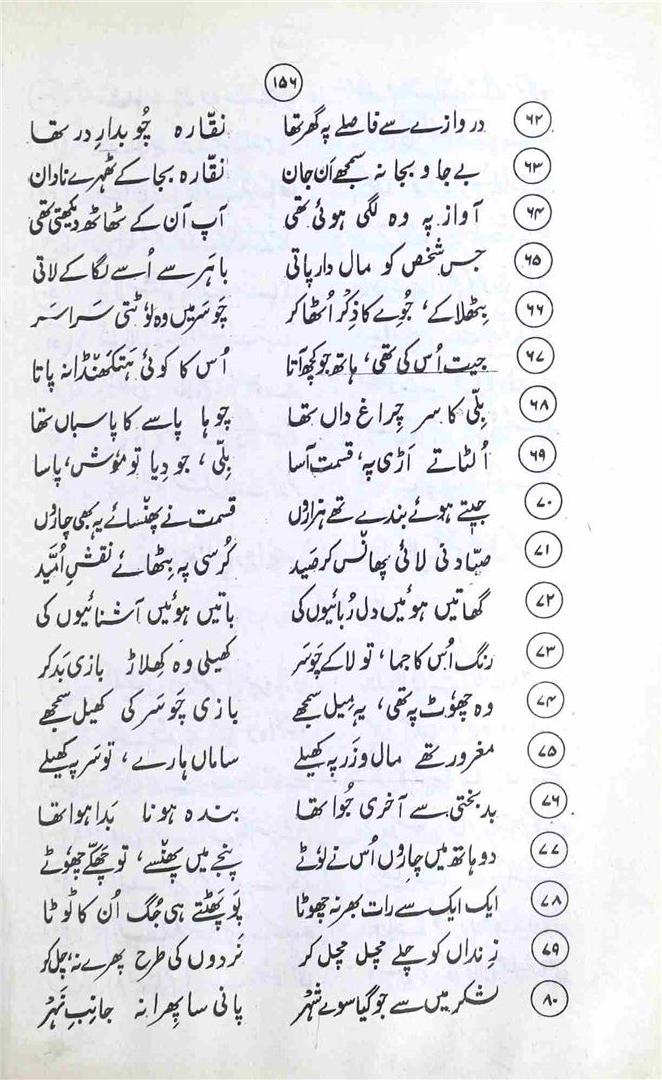 ۱۵۶
۶۲ دروازے سے فاصلے پہ گھر تھا نقّارہ چُوبدارِ در تھا
۶۳ بے جا و بجا نہ سمجھے اَن جان نقّارہ بجا کے ٹھہرے نادان
۶۴ آواز پہ وہ لگی ہوئی تھی آپ آن کے ٹھاٹھ دیکھتی تھی
۶۵ جس شخص کو مال دار پاتی باہر سے اُسے لگا کے لاتی
۶۶ بِٹھلا کے، جُوے کا ذِکْر اُٹھا کر چَوسَر میں وہ لوٗٹتی سَراسَر
۶۷ جیت اُس کی تھی، ہاتھ جو کچھ آتا اُس کا کوئی ہَتکَھنْڈا نہ پاتا
۶۸ بِلّی کا سر چِراغ داں تھا چوٗہا پاسے کا پاسباں تھا
۶۹ اُلٹاتے اَڑی پہ، قسمت آسا بلّی، جو دِیا تو موٗش، پاسا
۷۰ جیتے ہوئے بندے تھے ہزاروں قسمت نے پھنسائے یہ بھی چاروں
۷۱ صیّادنی لائی پھانس کر صَید کُرسی پہ بِٹھائے نقشِ اُمّید
۷۲ گھاتیں ہوئیں دل رُبائیوں کی باتیں ہوئیں آشنائیوں کی
۷۳ رنگ اُس کا جما، تو لا کے چَوسَر کھیلی وہ کِھلاڑ بازی بَد کر
۷۴ وہ چھوٗٹ پہ تھی، یہ میل سمجھے بازی چَوسَر کی کھیل سمجھے
۷۵ مغرور تھے مال و زَر پہ کھیلے ساماں ہارے، تو سَر پہ کھیلے
۷۶ بد بختی سے آخری جُوا تھا بندہ ہونا بَدا ہوا تھا
۷۷ دو ہاتھ میں چاروں اُس نے لوٗٹے پنجے میں پھنسے، تو چھکّے چھوٗٹے
۷۸ ایک ایک سے رات بھر نہ چھوٗٹا پَو پھٹتے ہی جُگ اُن کا ٹوٗٹا
۷۹ زِنداں کو چلے مچل مچل کر نَردوں کی طرح پھرے نہ چل کر
۸۰ لشکر میں سے جو گیا سوے شہْر پانی سا پِھرا نہ جانبِ نَہْر